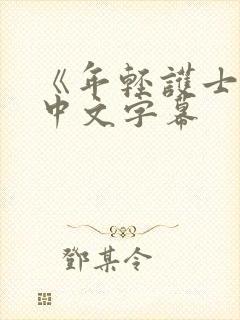 《年輕護士
中文字幕
鄧某令